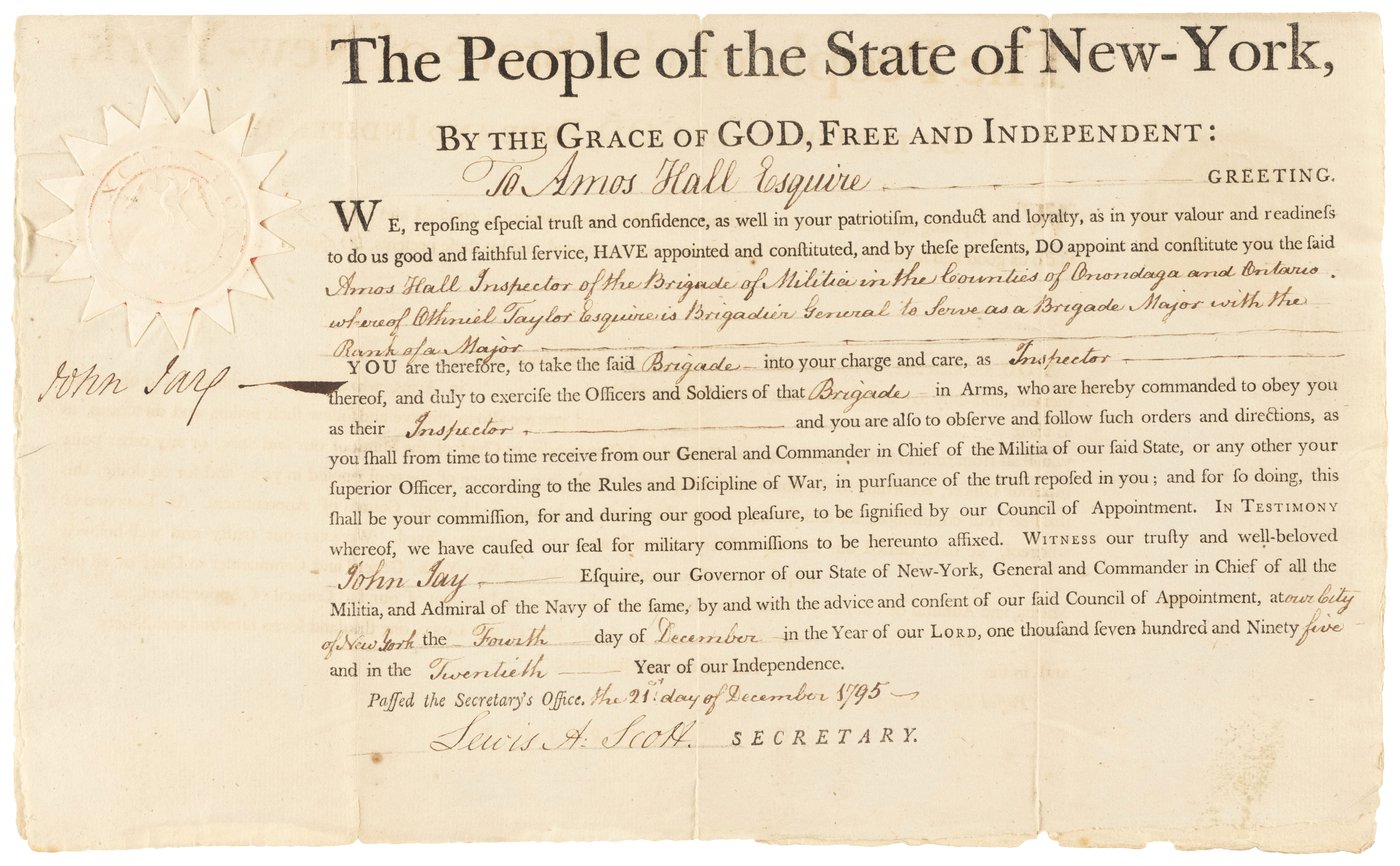 The People of the State of New-York,
By the Grace of GOD, Free and Independent:
To Amos Hall Esquire GREETING.
WE, repoſing eſpecial truſt and confidence, as well in your patriotiſm, conduct and loyalty, as in your valour and readineſs
to do us good and faithful ſervice, HAVE appointed and conſtituted, and by theſe preſents, DO appoint and conſtitute you the ſaid
Amos Hall Inspector of the Brigade of Militia in the Counties of Onondaga and Ontario.
whereof Othniel Taylor Esquire is Brigadier General to Serve as a Brigade Major with the
Rank of a Major
YOU are therefore, to take the ſaid Brigade into your charge and care, as Inspector
John Jay
thereof, and duly to exerciſe the Officers and Soldiers of that Brigade in Arms, who are hereby commanded to obey you
as their Inspector and you are alſo to obſerve and follow ſuch orders and directions, as
you ſhall from time to time receive from our General and Commander in Chief of the Militia of our ſaid State, or any other your
ſuperior Officer, according to the Rules and Diſcipline of War, in purſuance of the truſt repoſed in you; and for ſo doing, this
ſhall be your commiſſion, for and during our good pleaſure, to be ſignified by our Council of Appointment. In Testimony
whereof, we have cauſed our ſeal for military commiſſions to be hereunto affixed. Witness our truſty and well-beloved
John Jay Eſquire, our Governor of our State of New-York, General and Commander in Chief of all the
Militia, and Admiral of the Navy of the ſame, by and with the advice and conſent of our ſaid Council of Appointment, at our City
of New York the Fourth day of December in the Year of our Lord, one thouſand ſeven hundred and Ninety five
and in the Twentieth Year of our Independence.
Paſſed the Secretary's Office. the 21st. day of December 1795
Lewis A: Scott. SECRETARY.